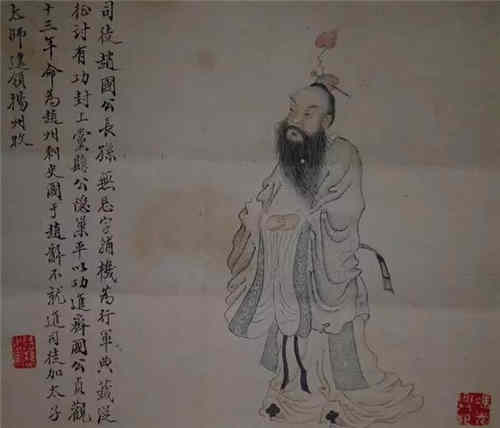 司徒趙國公長孫無忌字補機為行軍典籤從
征討有功封上黨縣公隱巢平以功進齊國公貞觀
十三年命為趙州刺史國于趙辭不就進司徒加太子
太師遙領揚州牧